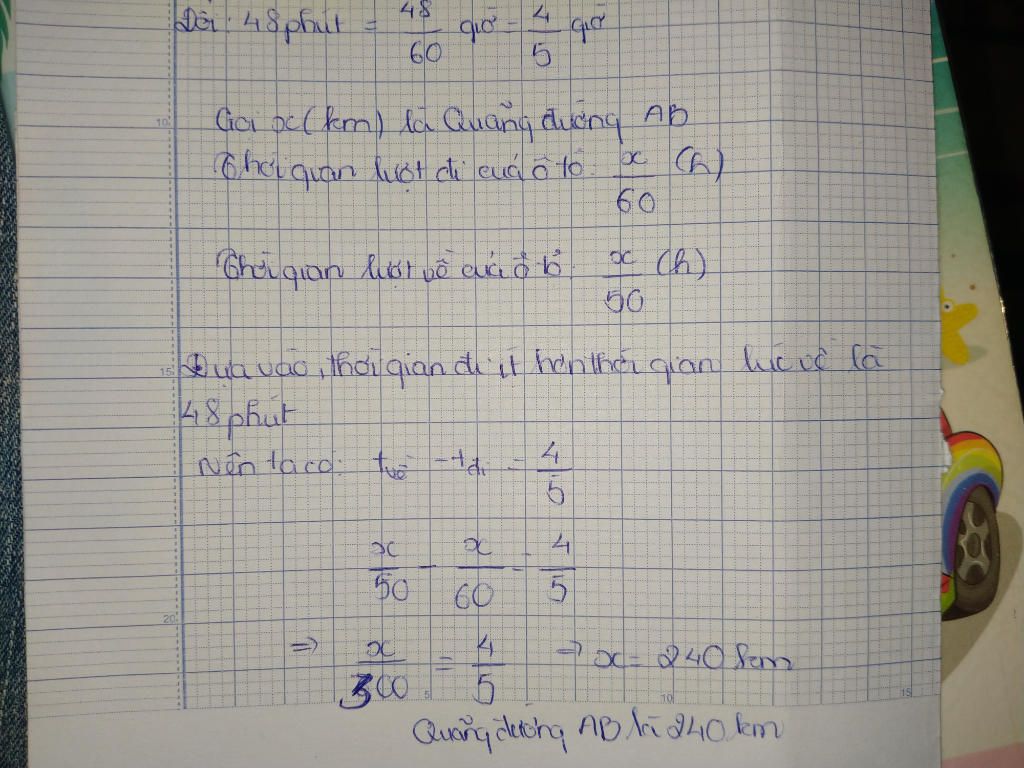 Đổi: 48 phút = 48/60 giờ = 4/5 giờ
10
Gọi x (km) là Quãng đường AB
Thời gian lượt đi của ô tô: x/60 (h)
Thời gian lượt về của ô tô: x/50 (h)
15 Dựa vào, thời gian đi ít hơn thời gian lúc về là
48 phút
Nên ta có: t về - t đi = 4/5
x/50 - x/60 = 4/5
20
⇒ x/300 = 4/5 ⇒ x = 240 km
5 10 15
Quãng đường AB là 240 km